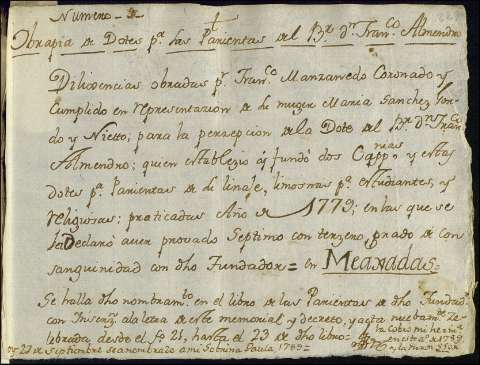 Numero 2
Obrapia de Dotes pª. las Parientas del Br. dn. Franco. Almendro
Dilixencias obradas pr. Franco. Manzanedo Coronado y
Cumplido en representazion de su muger Maria Sanchez
do y Nietto; para la percepcion de la Dote del Br. dn. Franco.
Almendro; quien establezio y fundó dos Cappnias. y estas
dotes pª. Parientas de su linaje, limosnas pª. estudiantes, y
religiosas; praticadas Año de 1779; en las que se
la Declaró aver provado Septimo con terzero grado de con
sanguinidad con dho Fundador = en Meaxadas =
Se halla dho nombramto. en el libro de las Parientas de dho Fundadr.
con Inserzn. ala letra de este memorial y decreto, y acta nuebamte. ze
lebrada, desde el fo. 21, hasta el 23 de dho libro =
la cobro mi herma.
en este aº. de 1789
oy 27 de septiembre se a nombrazo a mi sobrina Paula 1789 =